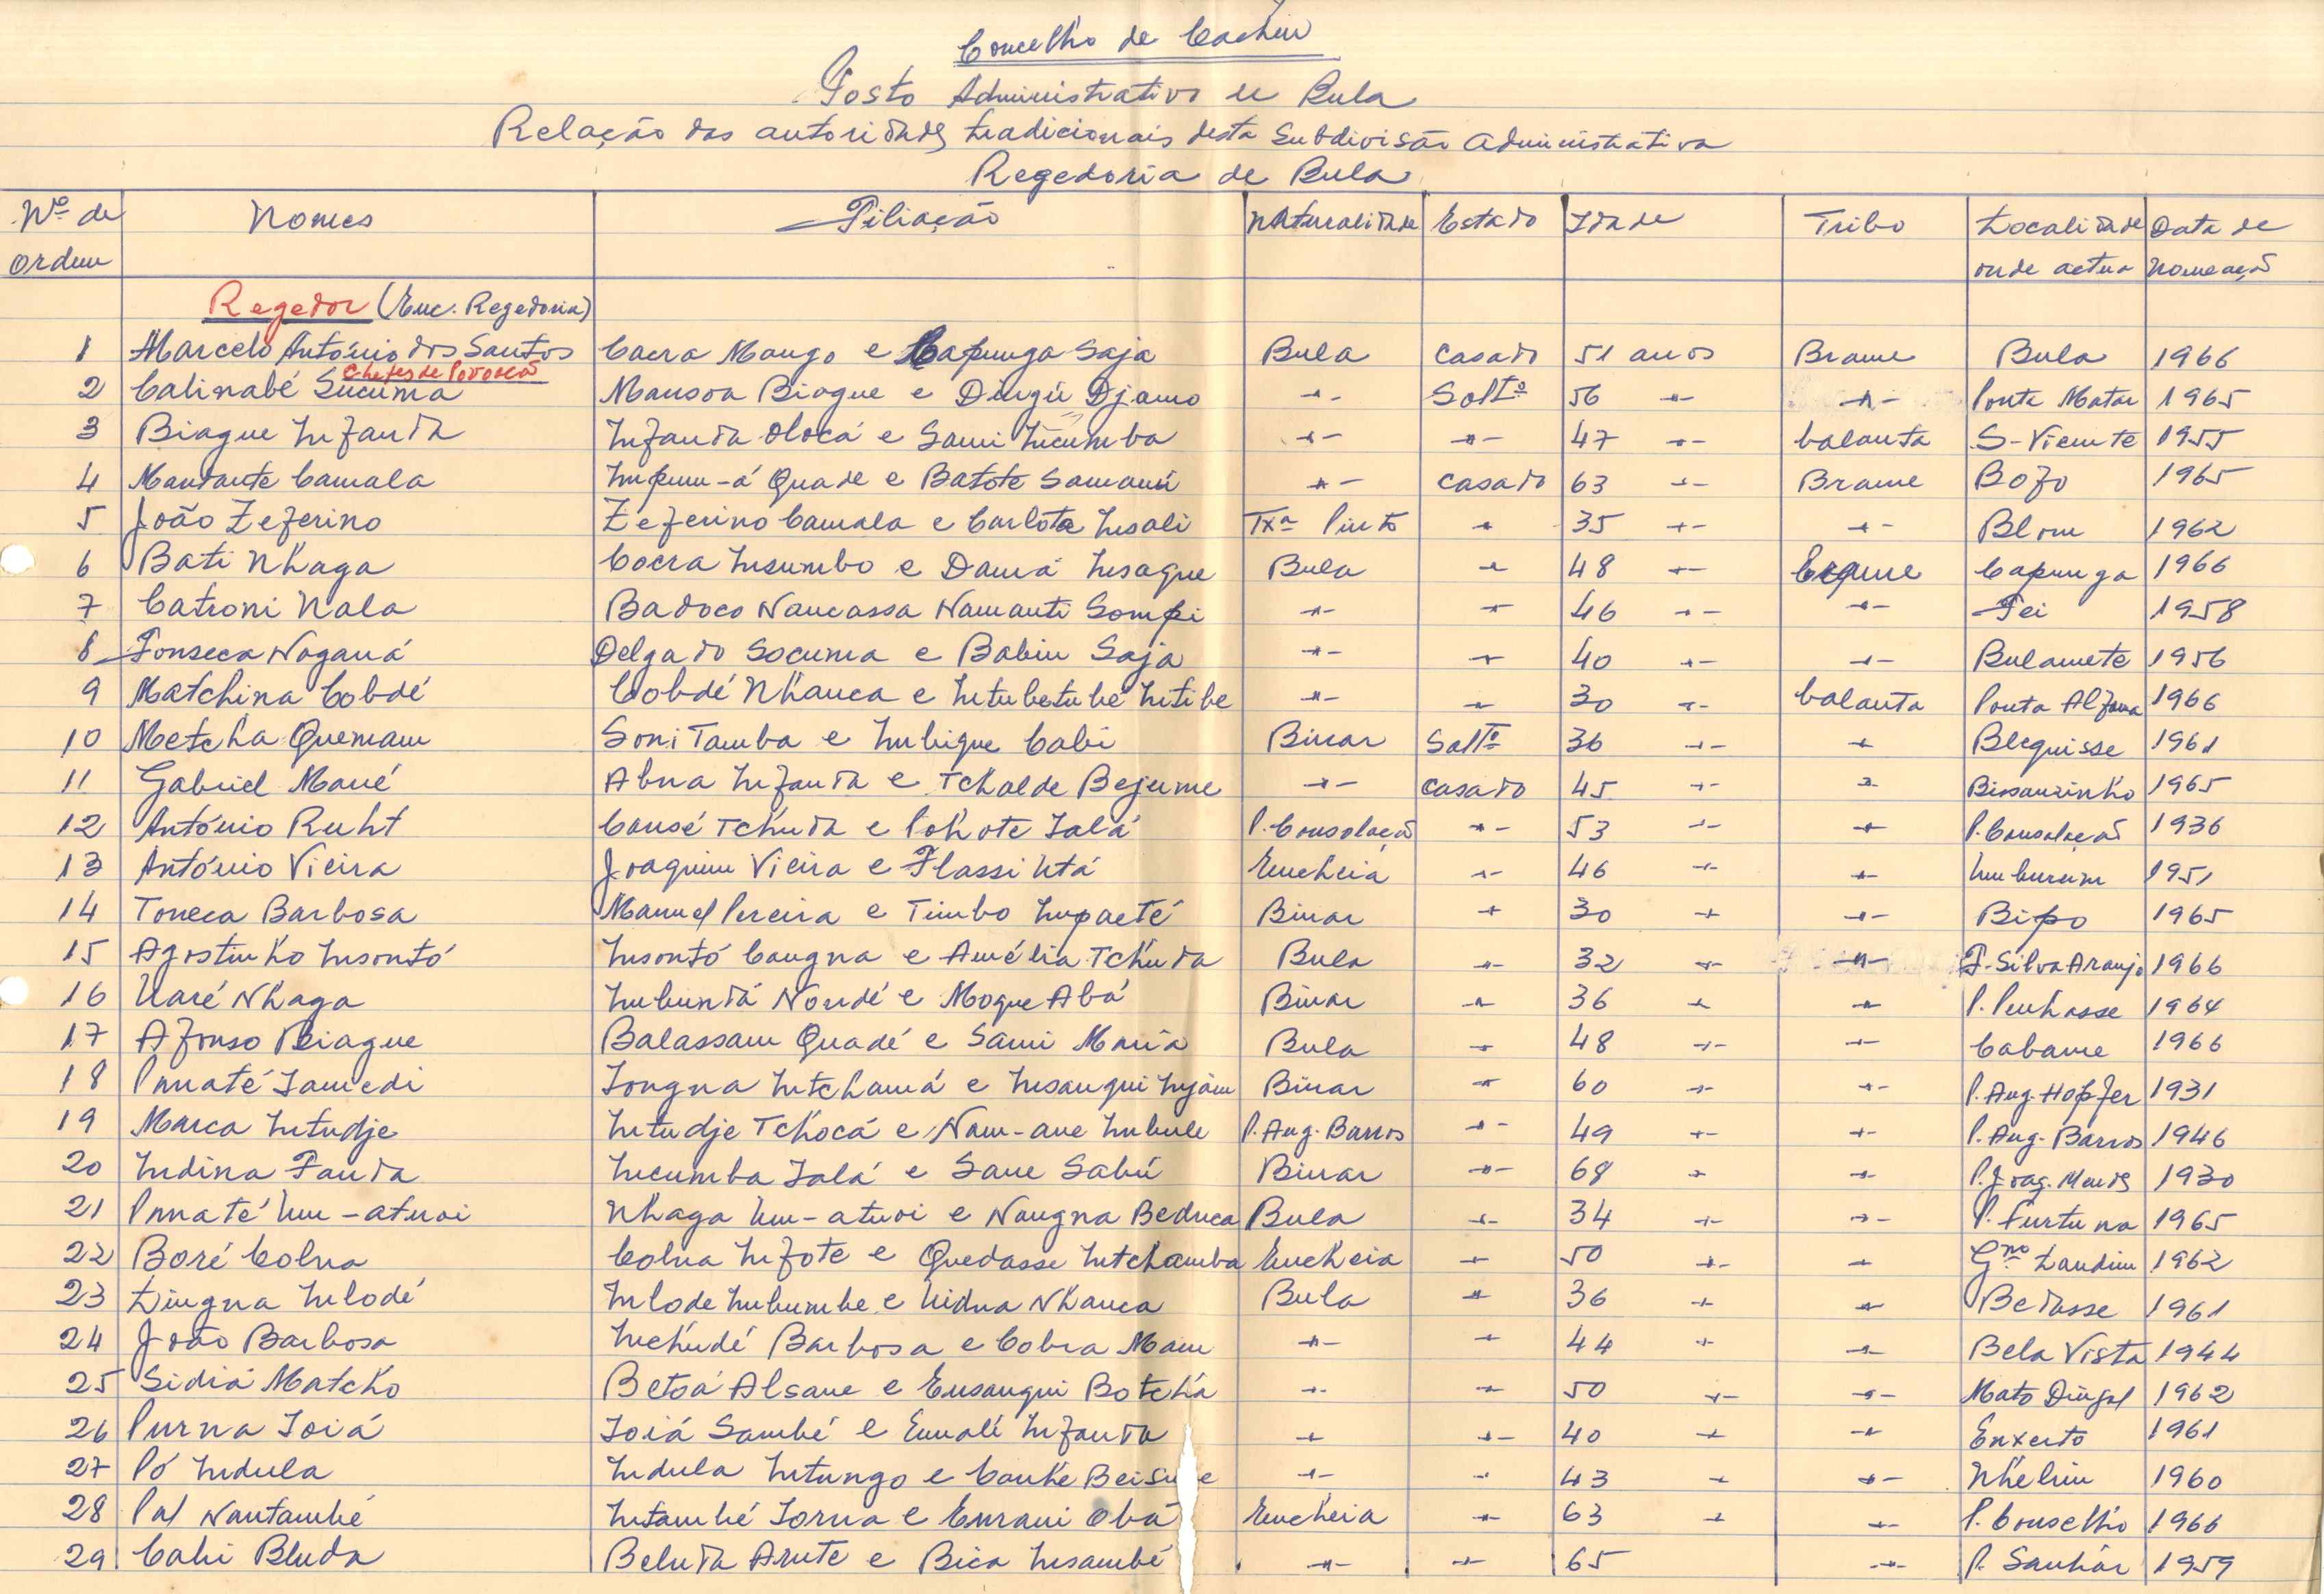 Concelho de Cacheu
Posto Administrativo de Bula
Relação das autoridades tradicionais desta Subdivisão Administrativa
Regedoria de Bula
Nº de ordem Nomes Filiação Naturalidade Estado Idade Tribo Localidade onde actua Data de nomeação
Regedor (Enc. Regedoria)
1 Marcelo António dos Santos Cacra Mango e Capunga Saja Bula casado 51 anos Brame Bula 1966
Chefes de Povoação
2 Calinabé Sucuma Mansoa Biague e Dingú Djamo -"- Soltº 56 -"- -"- Ponte Matar 1965
3 Biague Infanda Infanda Olocá e Sami Incumba -"- -"- 47 -"- balanta S-Vicente 1955
4 Mandante Camala Quade e Batote Samanú -"- casado 63 -"- Brame Bofo 1965
5 João Zeferino Zeferino Camala e Carlota Insali Txª Pinto " 35 -"- -"- Blom 1962
6 Bati Nhaga Cocra Insumbo e Damá Insague Bula " 48 -"- Brame Capunga 1966
7 Catroni Nala Badoco Nancassa Namanti Sompi -"- " 46 -"- -"- Fei 1958
8 Fonseca Naganá Delgado Socuma e Babiu Saja -"- " 40 -"- -"- Bulamete 1956
9 Matchina Cobdé Cobdé Nhanca e Intubetubé Intibe -"- " 30 -"- balanta Ponta Alfama 1966
10 Metcha Quemam Soni Tamba e Imbigue Cabi Binar Soltº 36 -"- " Blequisse 1961
11 Gabriel Mané Abna Infanda e Tchalde Bejume -"- casado 45 -"- " Bissauzinho 1965
12 António Ruht Cansé Tchuda e Pohote Ialá P. Consolação -"- 53 -"- " P. Consolação 1936
13 António Vieira Joaquim Vieira e Flassi Ntá Encheia -"- 46 -"- " 1951
14 Toneca Barbosa Manuel Pereira e Timbo Impaeté Binar " 30 " -"- Bipo 1965
15 Agostinho Insontó Insontó Cangna e Amélia Tchuda Bula " 32 -"- -"- F-Silva Araujo 1966
16 Naré Nhaga Imbundá Nondé e Moque Abá Binar " 36 " " P. Penhasse 1964
17 Afonso Biague Balassam Quadé e Sami Maria Bula " 48 -"- -"- Cabame 1966
18 Pnnaté Iamedi Iongna Intchamá e Insangui Injam Binar " 60 -"- -"- P. Aug. Hopffer 1931
19 Marca Intudje Intudje Tchocá e Nam-ane Imbule P. Aug. Barros -"- 49 -"- -"- P. Aug. Barros 1946
20 Indina Fanda Incumba Ialá e Sane Sabú Binar -"- 68 " " P. Joaq. Mendes 1930
21 Pnnaté Um-atuoi Nhaga Um-atuoi e Nangna Beduca Bula -"- 34 -"- -"- P. Furtuna 1965
22 Boré Colna Colna Infote e Quedasse Intchamba Encheia " 50 -"- " Gno Landim 1962
23 Lingna Inlodé Inlode Imbumbe e Nidna Nhanca Bula " 36 " " Bedasse 1961
24 João Barbosa Inchudé Barbosa e Cobra Mam -"- " 44 " " Bela Vista 1944
25 Sidiá Matcho Betoá Alsane e Ensangui Botchá -"- " 50 -"- -"- Mato Dingal 1962
26 Purna Ioiá Ioiá Sambé e Enualé Infanda " -"- 40 " -"- Enxerto 1961
27 Pó Indula Indula Intungo e Canhe -"- " 43 " -"- Nhelim 1960
28 Pal Nantambé Intambé Iorna e Emrani Obá Encheia " 63 " " P. Conselho 1966
29 Cabi Bluda Beluda Arute e Bica Insambé -"- " 65 -"- P. Sanhár 1959